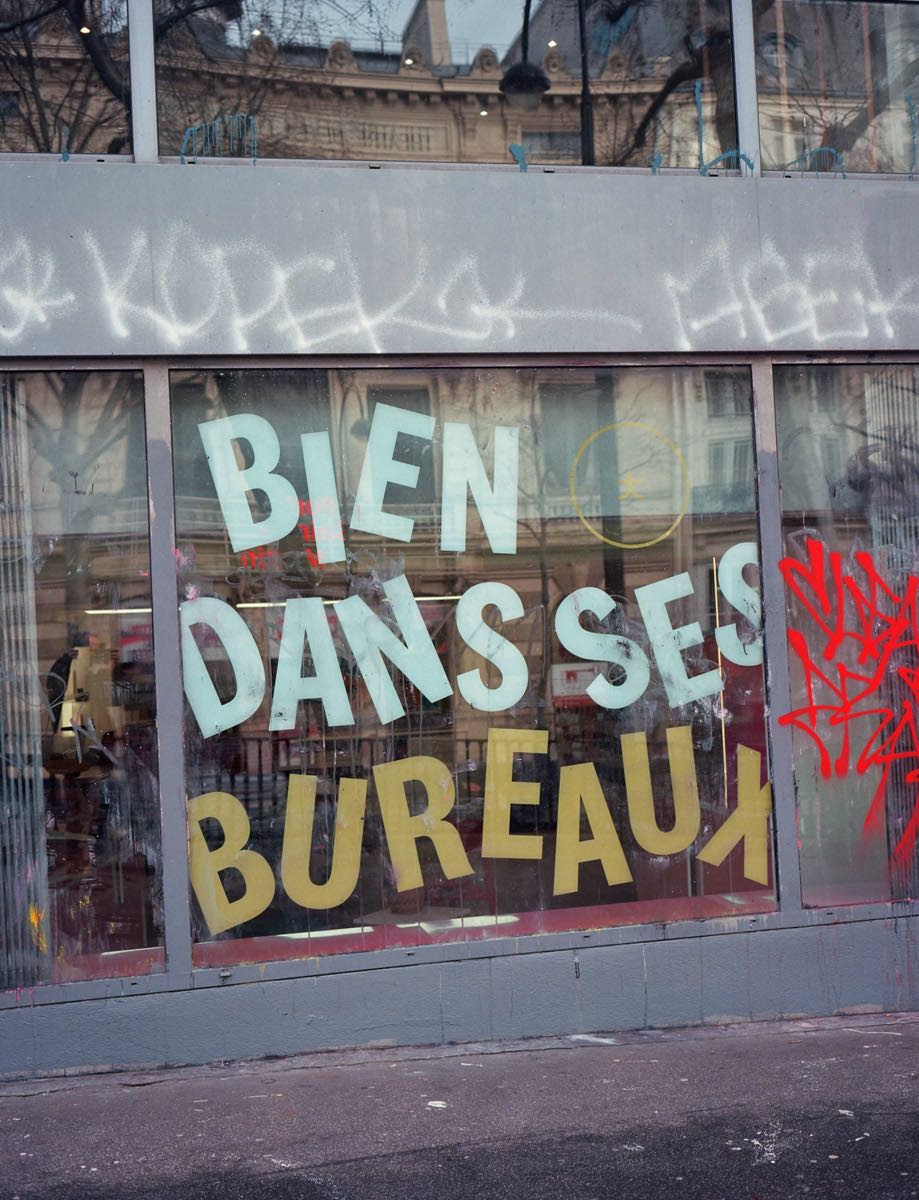 KOPEK
BIEN
DANS SES
BUREAUX